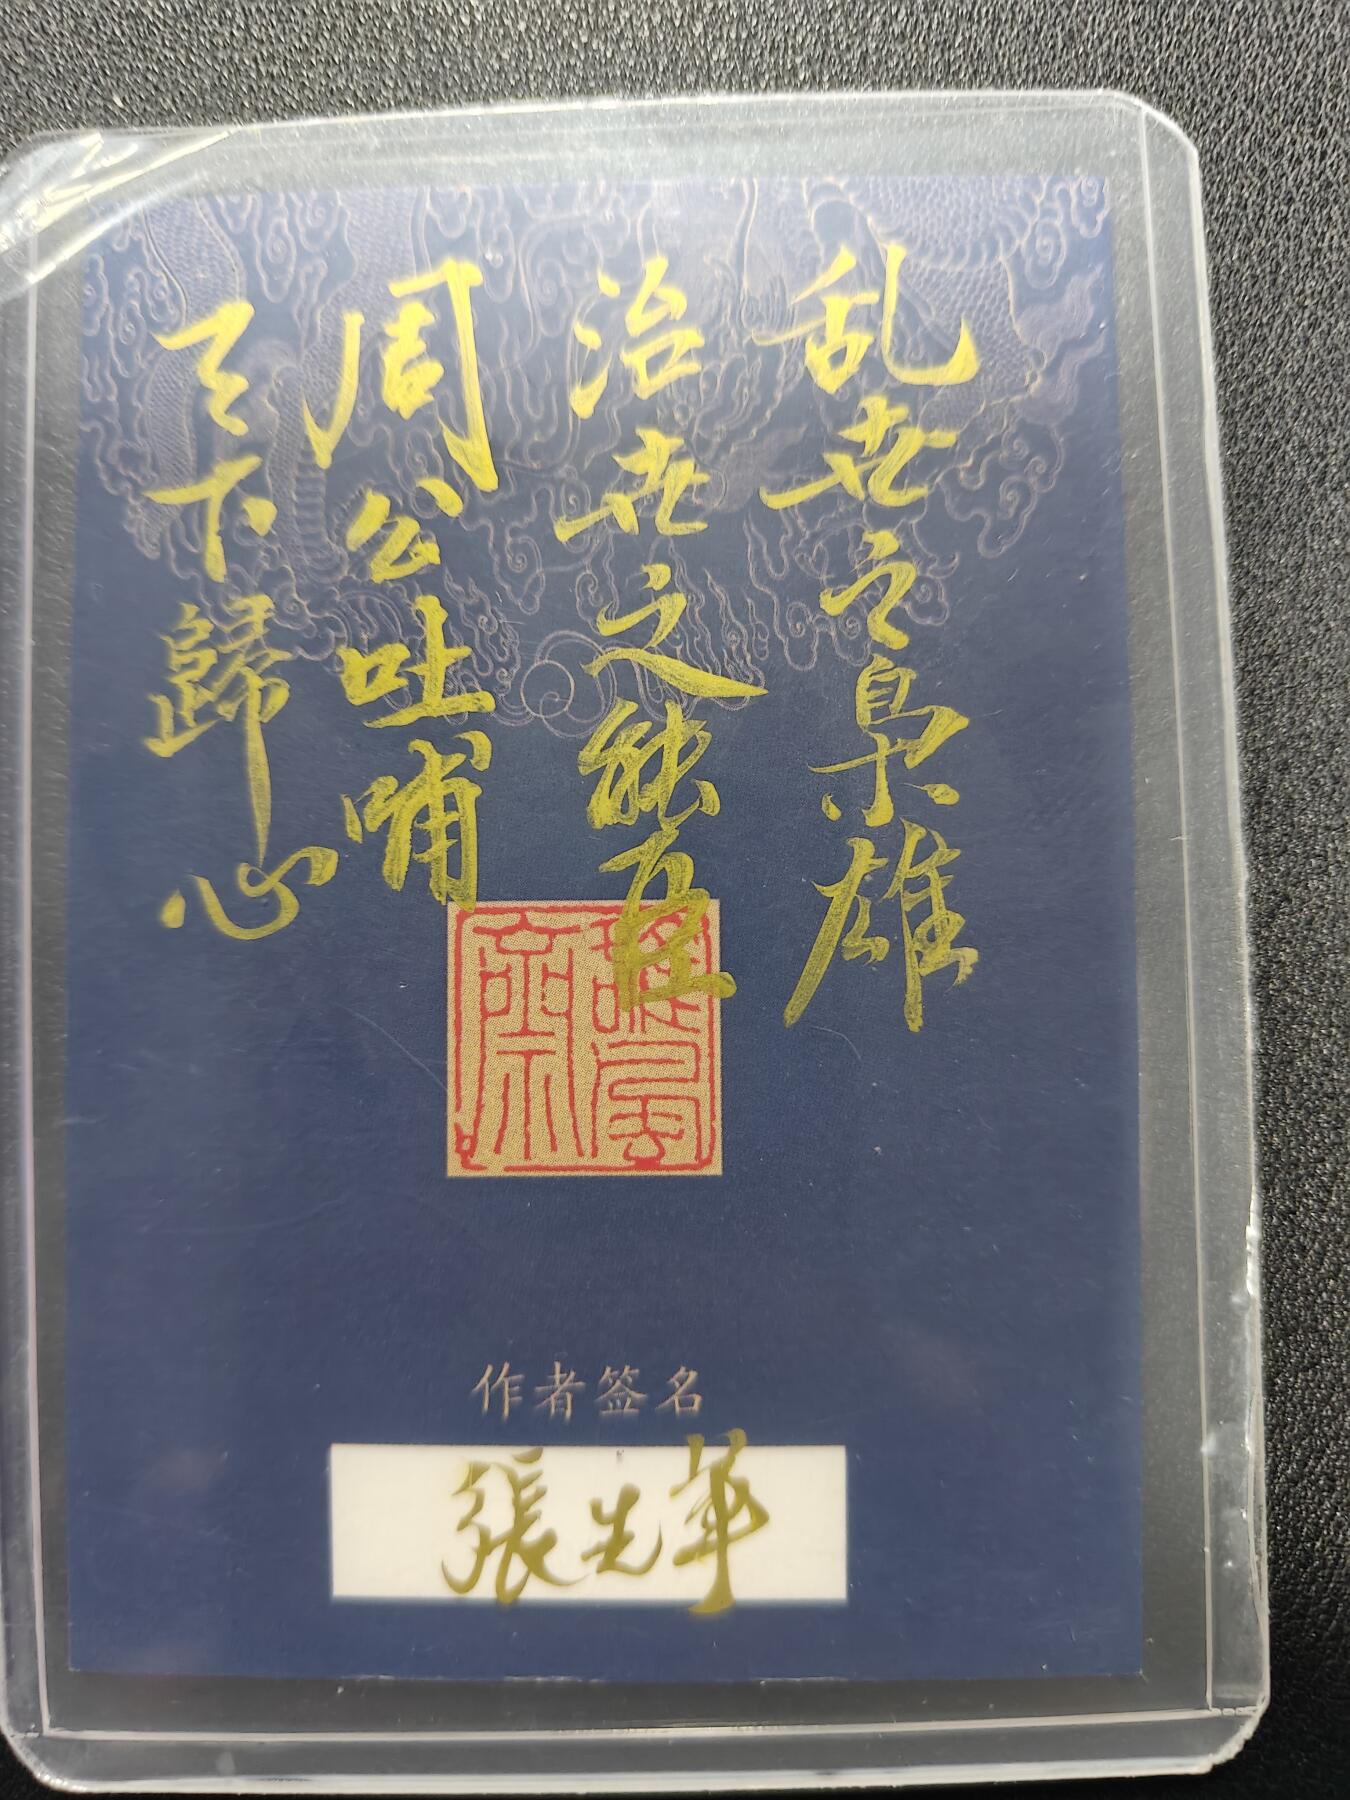 乱世之枭雄
治世之能臣
周公吐哺
天下歸心
作者签名
張先军